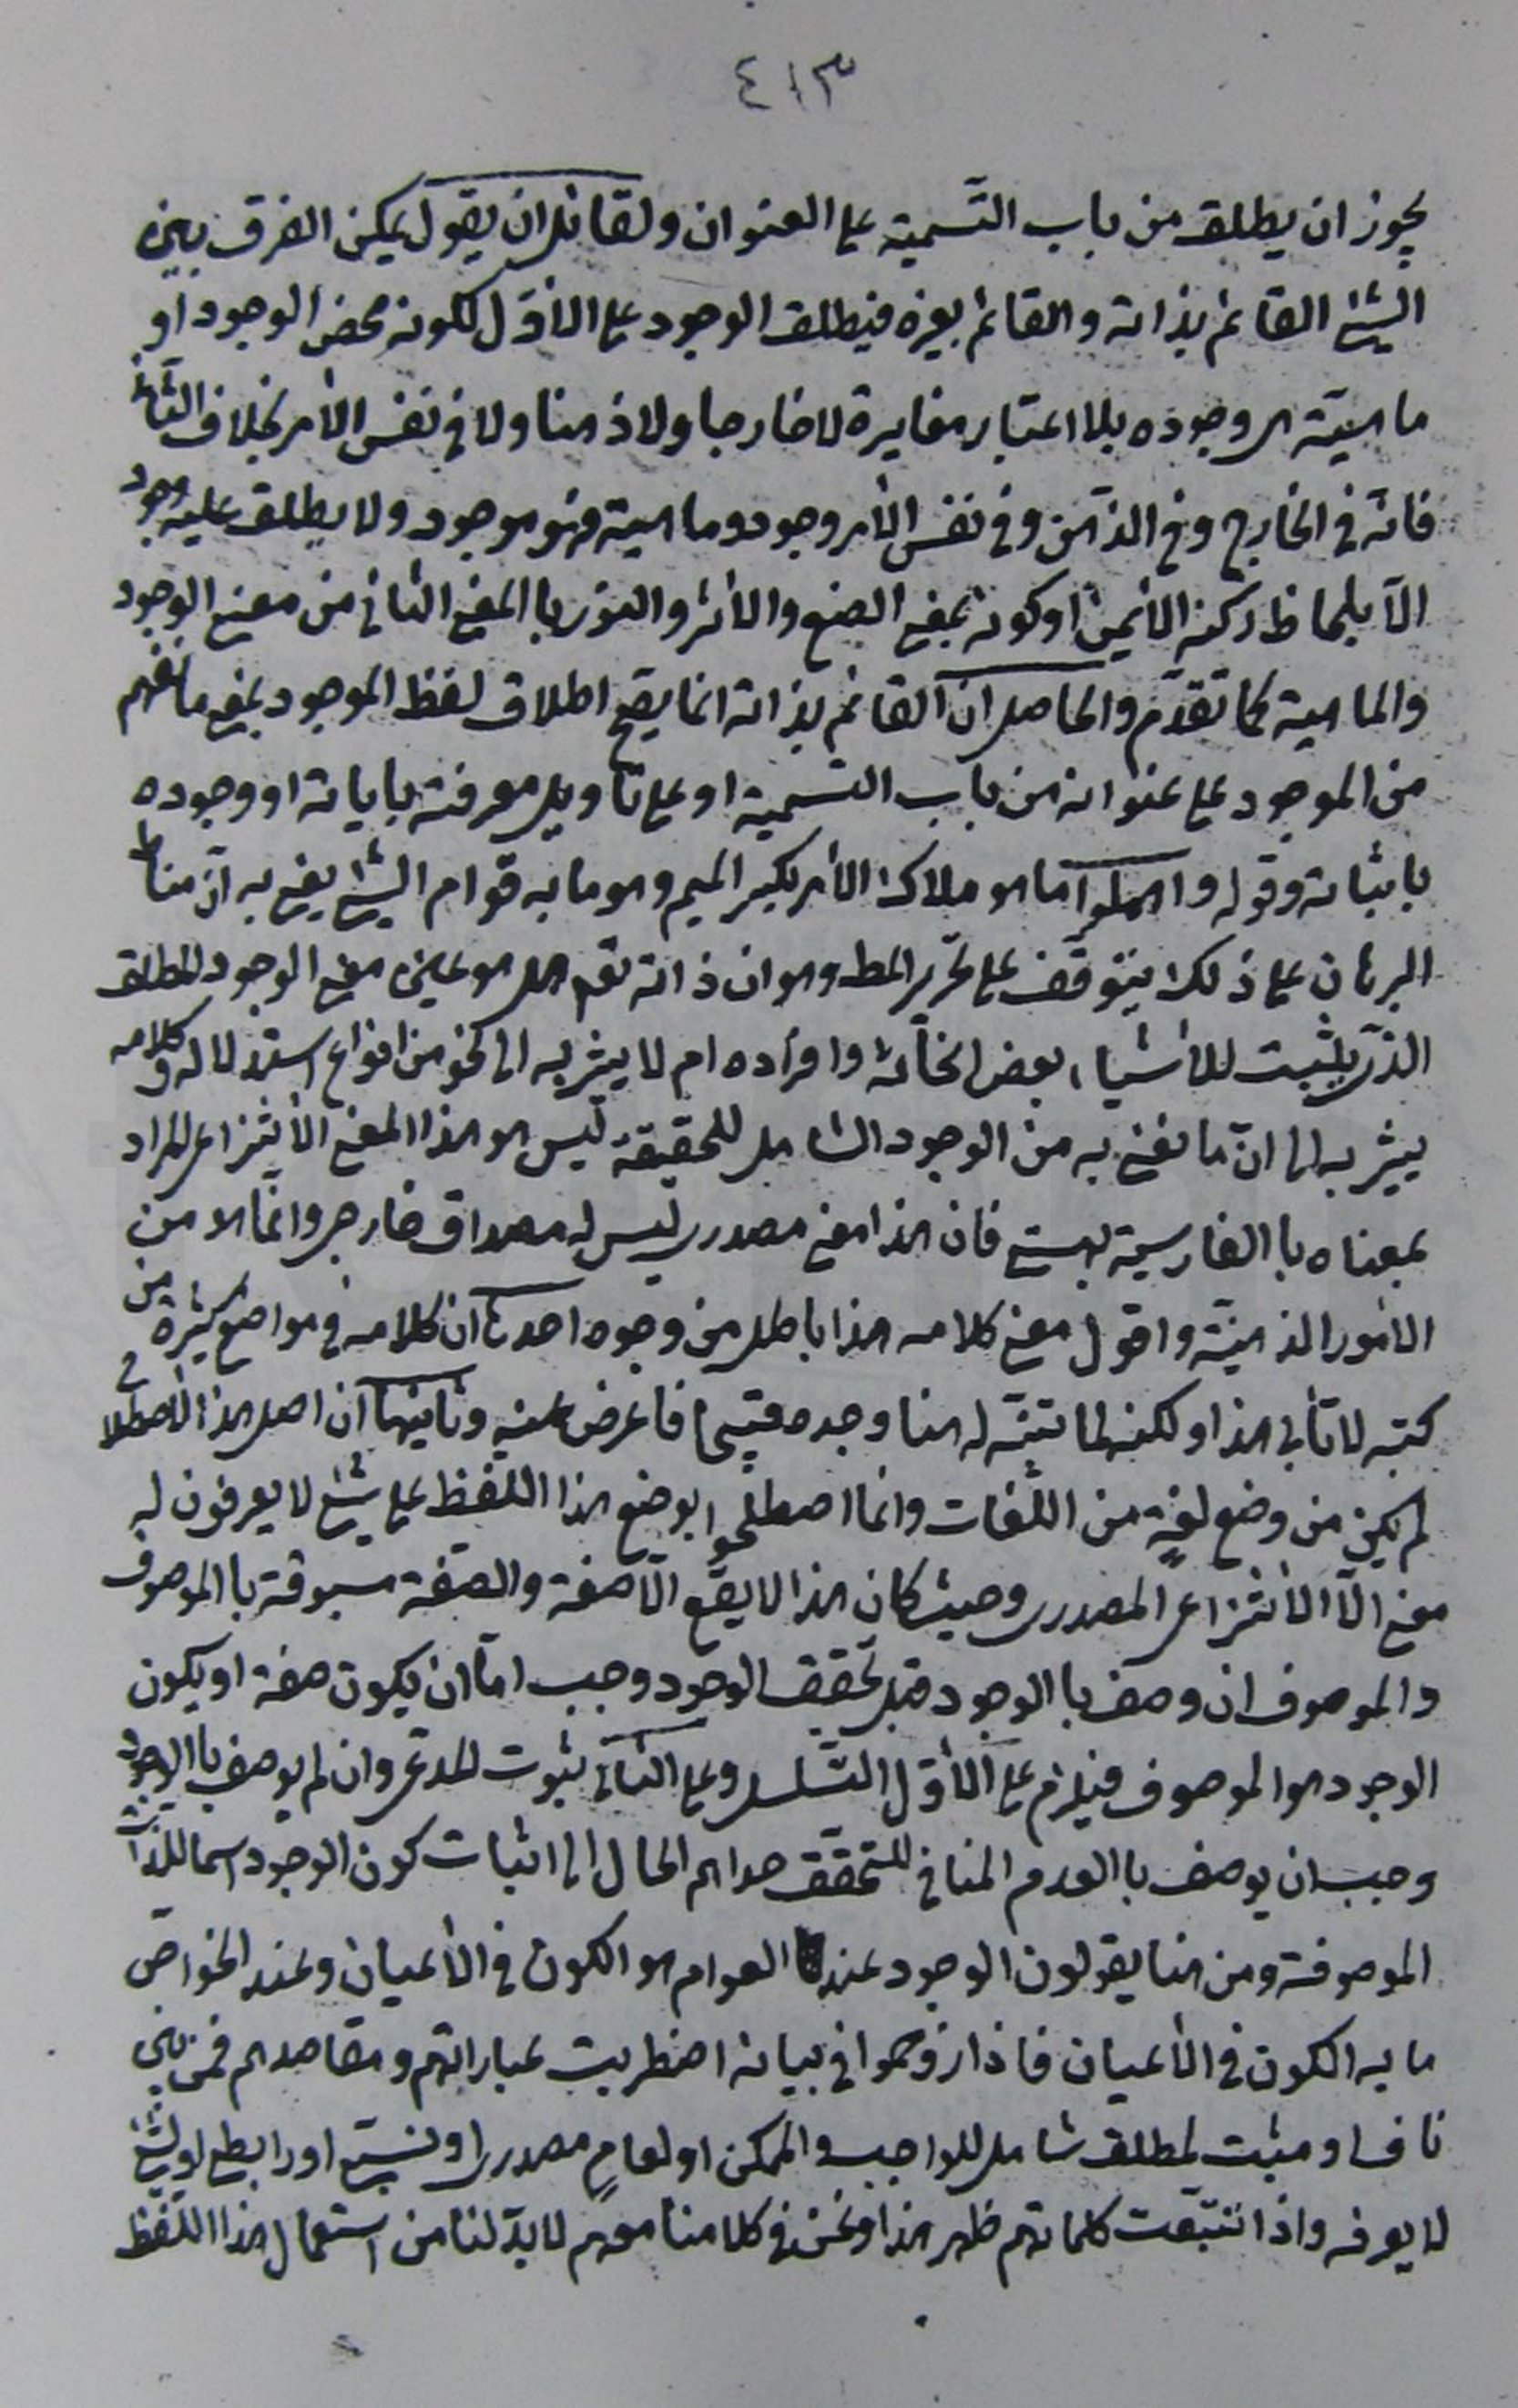 ٤١٣
يجوز ان يطلق من باب التّسمية على العنوان ولقائل ان يقول يمكن الفرق بين
الشئ القائم بذاته والقائم بغيره فيطلق الوجود على الأوّل لكونه محض الوجود او
ماهيّته هى وجوده بلا اعتبار مغايرة لا خارجا ولا ذهنا ولا فى نفس الأمر بخلاف الثّانى
فانّه فى الخارج وفى الذّهن وفى نفس الأمر وجود وماهية فهو موجود ولا يطلق عليه وجود
الّا بلحاظ ركنه الأيمن او كونه بمعنى الصنع والأثر والنور باالمعنى الثانى من معنيى الوجود
والماهية كما تقدّم والحاصل ان القائم بذاته انما يصح اطلاق لفظ الموجود بمعنى ما نفهم
من الموجود على عنوانه من باب التسمية او على تاويل معرفته باياته او وجوده
باثباته وقوله واهملوا ما هو ملاك الأمر بكسر الميم وهو ما به قوام الشئ يعنى به انّ مناط
البرهان على ذلك يتوقف على تحرير المط وهو ان ذاته تعم هل هو عين معنى الوجود المطلق
الذى يثبت للأشياء بعض انحائه وافراده ام لا يشير به الى نحو من انواع استدلاله وكلامه
يشير به الى انّ ما نعنى به من الوجود الشامل للحقيقة ليس هو هذا المعنى الأنتزاعى المراد
بمعناه باالفارسية بهستى فان هذا معنى مصدرى ليس له مصداق خارجى وانّما هو من
الأمور الذهنيّة واقول معنى كلامه هذا باطل من وجوه احدها ان كلامه فى مواضع كثيرة من
كتبه لا تأبى هذا ولكنه لما تنبّه له هنا وجده قبيحا فاعرض عنه وثانيها ان اصل هذا الأصطلاح
لم يكن من وضع لغةٍ من اللّغات وانما اصطلحوا بوضع هذا اللّفظ على شئ لا يعرفون له
معنى الّا الأنتزاعى المصدرى وحيث كان هذا لا يقع الّا صفة والصّفة مسبوقة باالموصوف
والموصوف ان وصف باالوجود قبل تحقق الوجود وجب امّا ان يكون صفة او يكون
الوجود هو الموصوف فيلزم على الأوّل التّسلسل وعلى الثّانى ثبوت المدّعى وان لم يوصف باالوجود
وجب ان يوصف باالعدم المنافى للتحقق حداهم الحال الى اثبات كون الوجود اسما للذات
الموصوفة ومن هنا يقولون الوجود عند العوام هو الكون فى الأعيان وعند الخواصّ
ما به الكون فى الأعيان فاذا زوحموا فى بيانه اضطربت عباراتهم ومقاصدهم فمن بين
ناف او مثبت لمطلق شامل للواجب والممكن او لعامٍ مصدرى او نسبىّ او رابطى او لشئ
لا يعرفه واذا تتبّعت كلماتهم ظهر هذا ونحن فى كلامنا معهم لا بدّ لنا من استعمال هذا اللّفظ